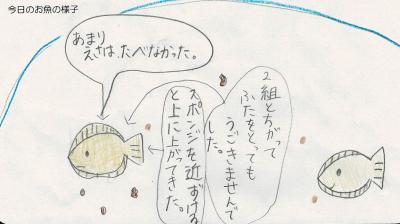 今日のお魚の様子
あまり
えさは、たべなかった。
2組とちがって
ふたをとっても
うごきませんで
した。
スポンジを近ずける
と上に上がってきた。